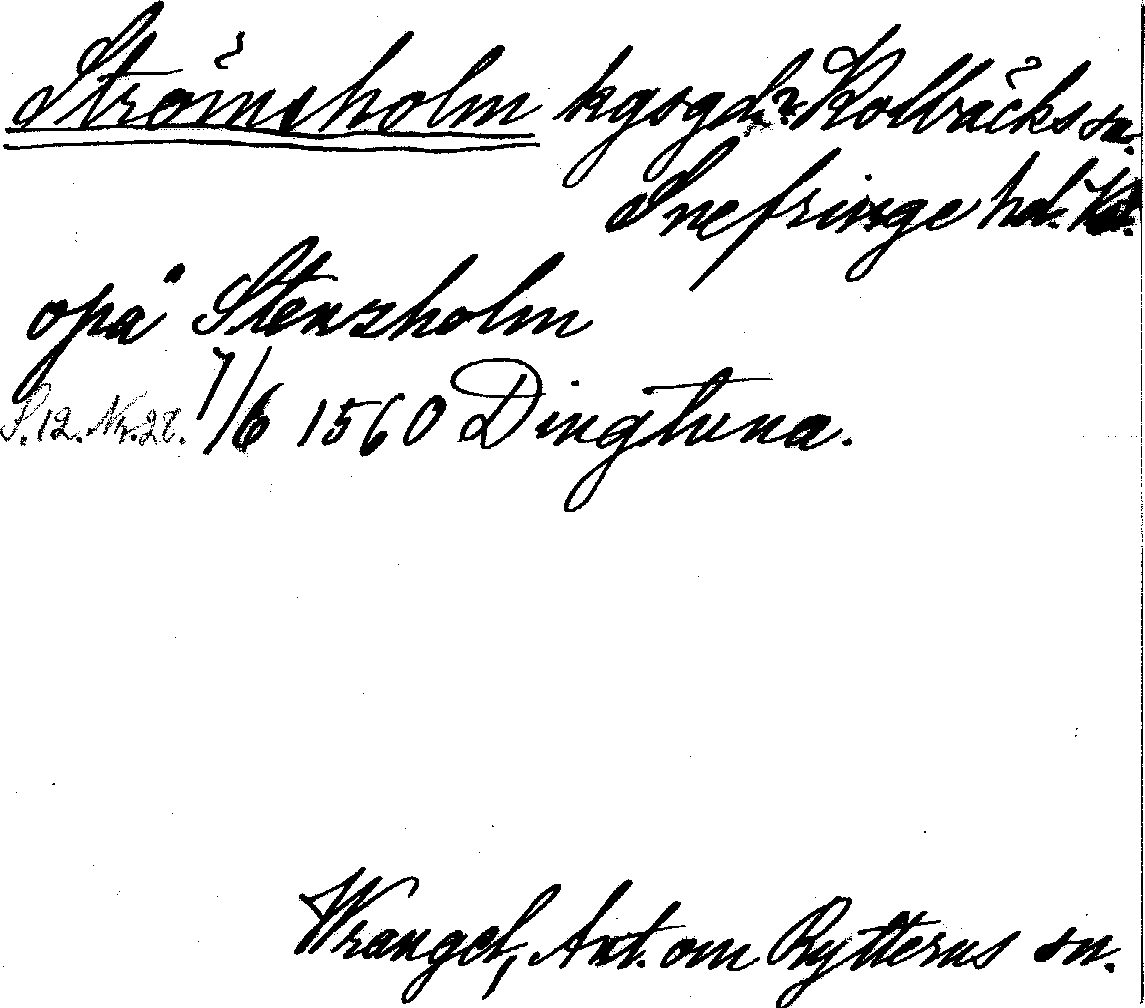 Strömsholm kgsgd? Kolbäcks sn.
Snefringe hd.
opå Stenzholm
S.12. Nr.28. 7/6 1560 Dingtuna.
Wrangel, Ant. om Rytterns sn.